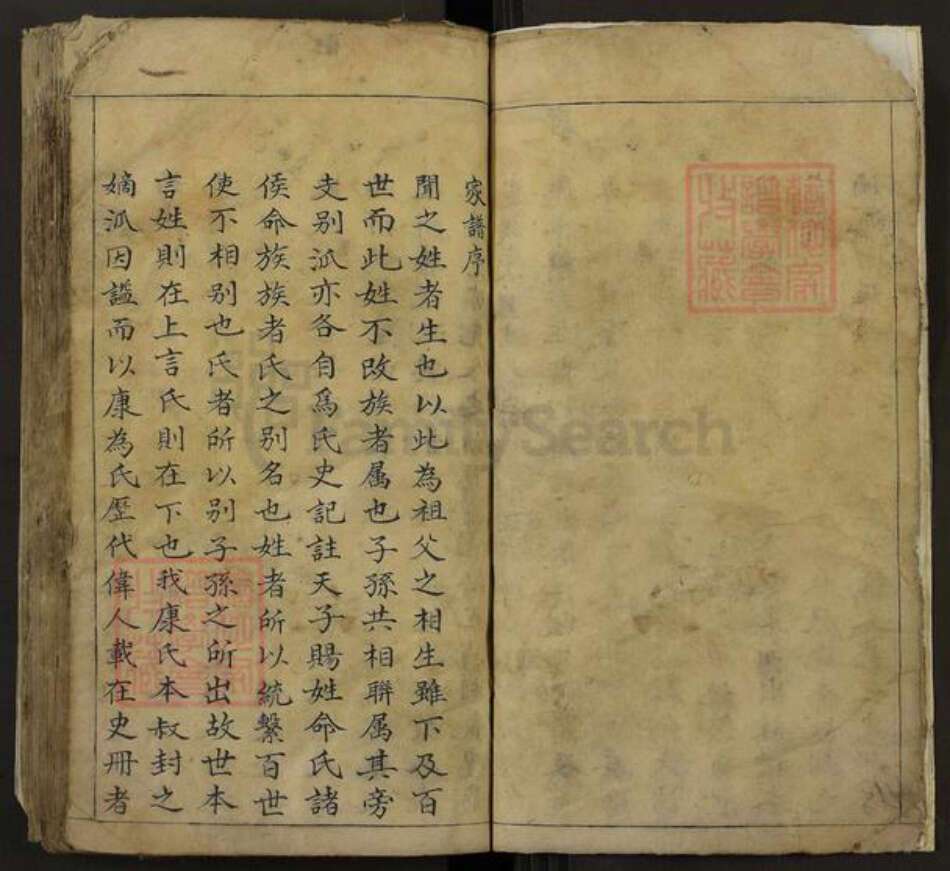 家譜序
聞之姓者生也以此為祖父之相生雖下及百
世而此姓不改族者属也子孫共相聯属其旁
支别派亦各自爲氏史記註天子賜姓命氏諸
侯命族族者氏之别名也姓者所以統繫百世
使不相别也氏者所以别子孫之所出故世本
言姓則在上言氏則在下也我康氏本叔封之
嫡派因謚而以康為氏歷代偉人載在史冊者
FamilySearch